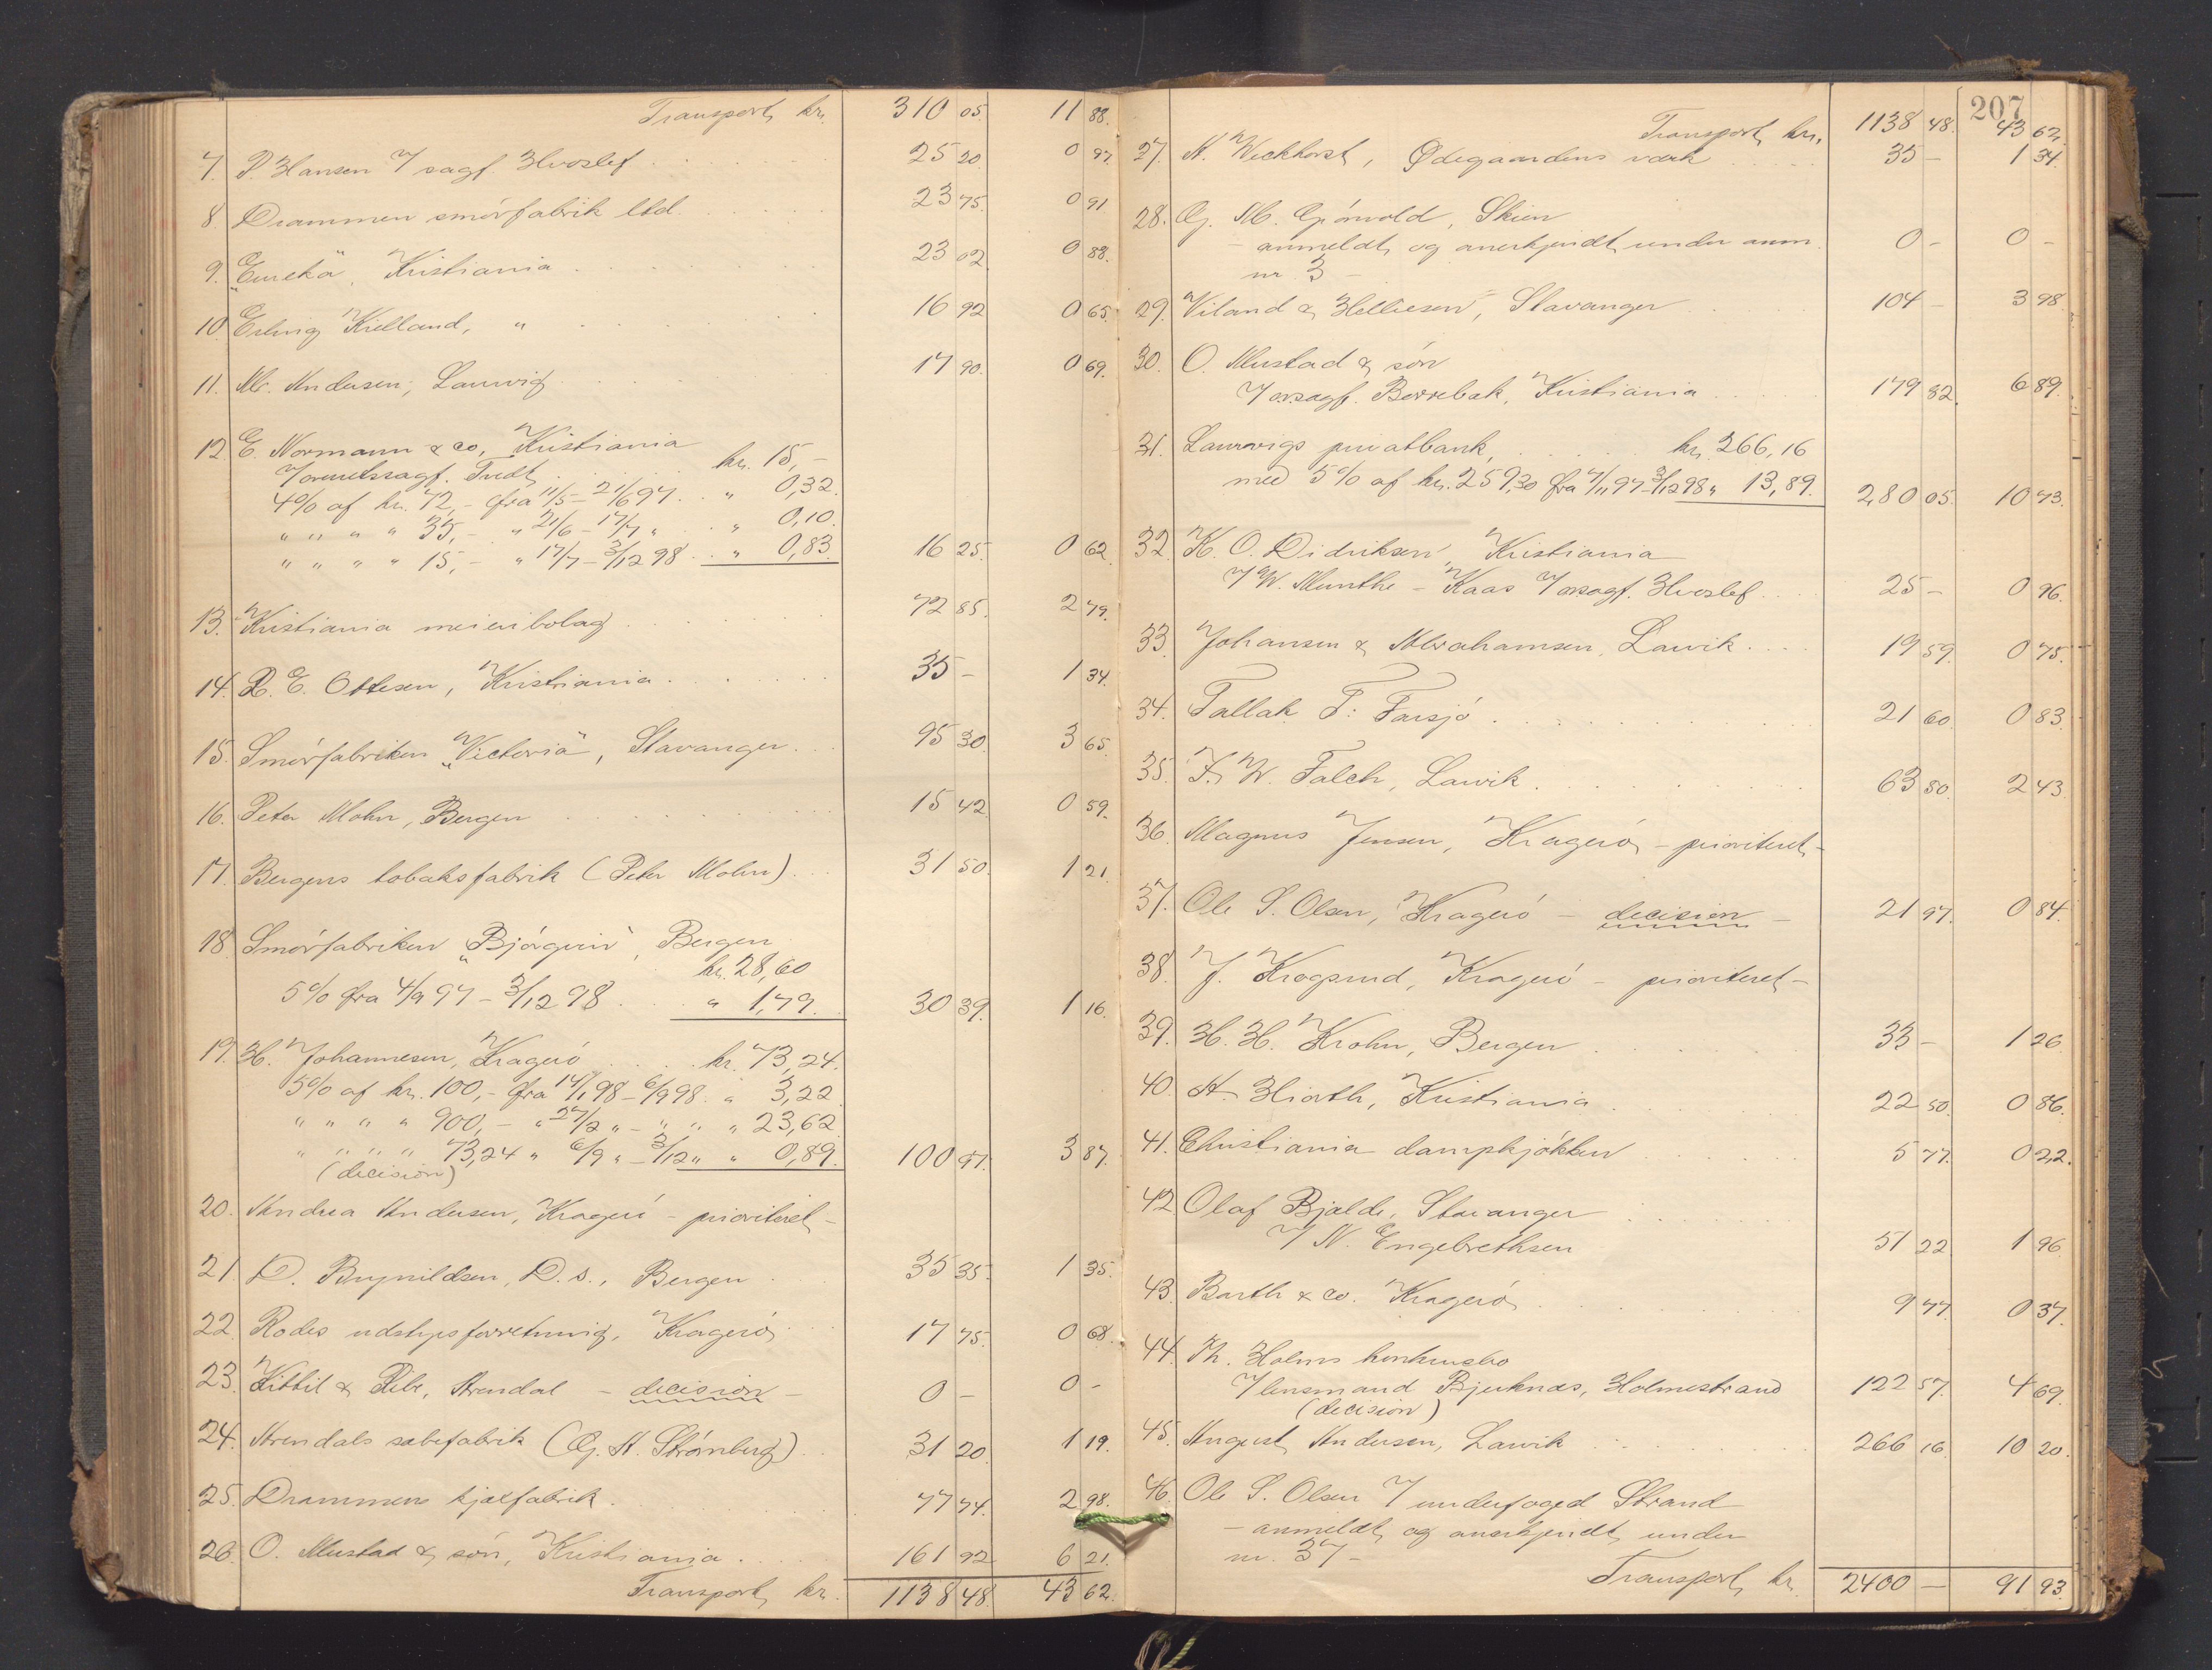 Transport kr. 310 05. 11 88.
7. P. Hansen v/ sagf. Hvoslef 25 20 0 97.
8. Drammen smørfabrik ltd. 23 75. 0 91
9. „Eureka", Kristiania 23 02 0 88.
10. Erling Kielland, " 16 92 0 65.
11. M. Andersen, Laurvig 17 90. 0 69.
12. E. Normann & co, Kristiania
v/ overretssagf. Tvedt kr. 15,-
4% af kr. 72,- fra 11/5 - 21/6 97. " 0,32.
" " " " 35,- " 21/6 - 17/7 " " 0,10.
" " " " 15,- " 17/7 - 3/12 98 " 0,83. 16 25. 0 62.
13. Kristiania meieribolag 72 85. 2 79.
14. R. E. Ottesen, Kristiania 35 - 1 34.
15. Smørfabriken „Victoria", Stavanger 95 30. 3 65.
16. Peter Mohn, Bergen 15 42 0 59.
17. Bergens tobaksfabrik (Peter Mohn) 31 50. 1 21.
18. Smørfabriken „Bjørgvin", Bergen
kr. 28,60
5% fra 4/9 97 - 3/12 98 " 1,79. 30 39. 1 16.
19. H. Johannesen, Kragerø kr. 73,24.
5% af kr. 100,- fra 14/1 98 - 6/9 98. " 3,22
" " " " 900,- " 27/2 " - " " " 23,62
" " " " 73,24 " 6/9 " - 3/12 " " 0,89. 100 97. 3 87.
(decision)
20. Andrea Andersen, Kragerø - prioriteret -
21. D. Brynildsen, D. s., Bergen 35 35. 1 35.
22. Rodes udstyrsforretning, Kragerø 17 75. 0 68.
23. Kittil & Pihl, Arendal - decision - 0 - 0 -
24. Arendals sæbefabrik (Gj. A. Strømberg) 31 20. 1 19.
25. Drammens kjæxfabrik 77 74. 2 98.
26. O. Mustad & søn, Kristiania 161 92 6 21.
Transport kr. 1138 48. 43 62.
207
Transport kr. 1138 48. 43 62.
27. A. Weckhorst, Ødegaardens værk 35 - 1 34.
28. Gj. M. Grønvold, Skien
- anmeldt og anerkjendt under anm. 0 - 0 -
nr. 3 -
29. Viland & Helliesen, Stavanger 104 - 3 98.
30. O. Mustad & søn
v/ orsagf. Borrebæk, Kristiania 179 82. 6 89.
31. Laurvigs privatbank, kr. 266,16
med 5% af kr. 259,30 fra 7/11 97 - 3/12 98 " 13,89. 280 05. 10 73.
32. K. O. Didriksen, Kristiania
v/ W. Munthe - Kaas v/ orsagf. Hvoslef 25 - 0 96.
33. Johansen & Abrahamsen, Larvik 19 59. 0 75.
34. Tallak T. Farsjø 21 60. 0 83.
35. F. W. Falch, Larvik 63 50. 2 43.
36. Magnus Jensen, Kragerø - prioriteret -
37. Ole S. Olsen, Kragerø - decision - 21 97. 0 84.
38. J. Krogsrud, Kragerø - prioriteret -
39. H. H. Krohn, Bergen 33 - 1 26.
40. A. Hiorth, Kristiania 22 50. 0 86.
41. Christiania dampkjøkken 5 77. 0 22.
42. Olaf Bjelde, Stavanger
v/ N. Engebrethsen 51 22 1 96.
43. Barth & co. Kragerø 9 77. 0 37.
44. Th. Holms konkursbo
v/ lensmand Bjerknæs, Holmestrand 122 57. 4 69.
(decision)
45. August Andersen, Larvik 266 16. 10 20.
46. Ole S. Olsen v/ underfoged Strand
- anmeldt og anerkjendt under
nr. 37 -
Transport kr. 2400 - 91 93.